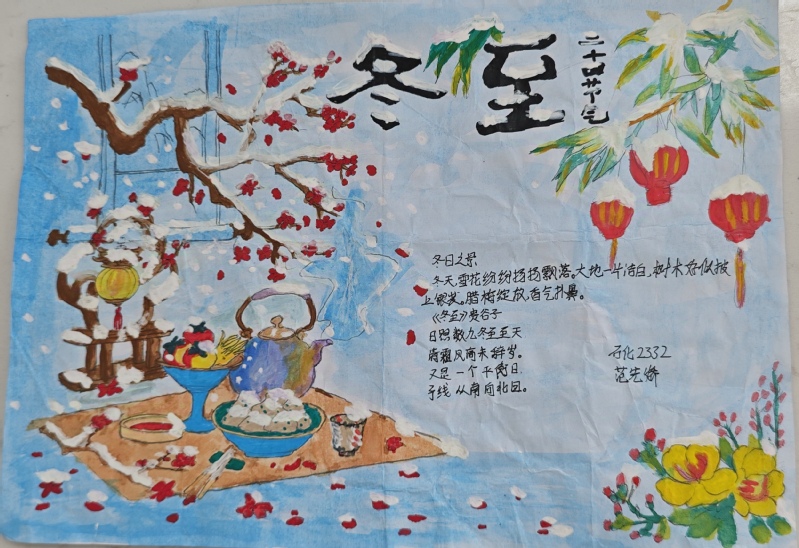 冬至
二十四节气
冬日之景
冬天,雪花纷纷扬扬飘落,大地一片洁白,树木好似披
上银装。腊梅绽放,香气扑鼻。
《冬至》麦谷子
日照数九冬至天
清霜风高未辞岁。
又是一个平衡日,
子线从南向北回。
石化2332
范先娇